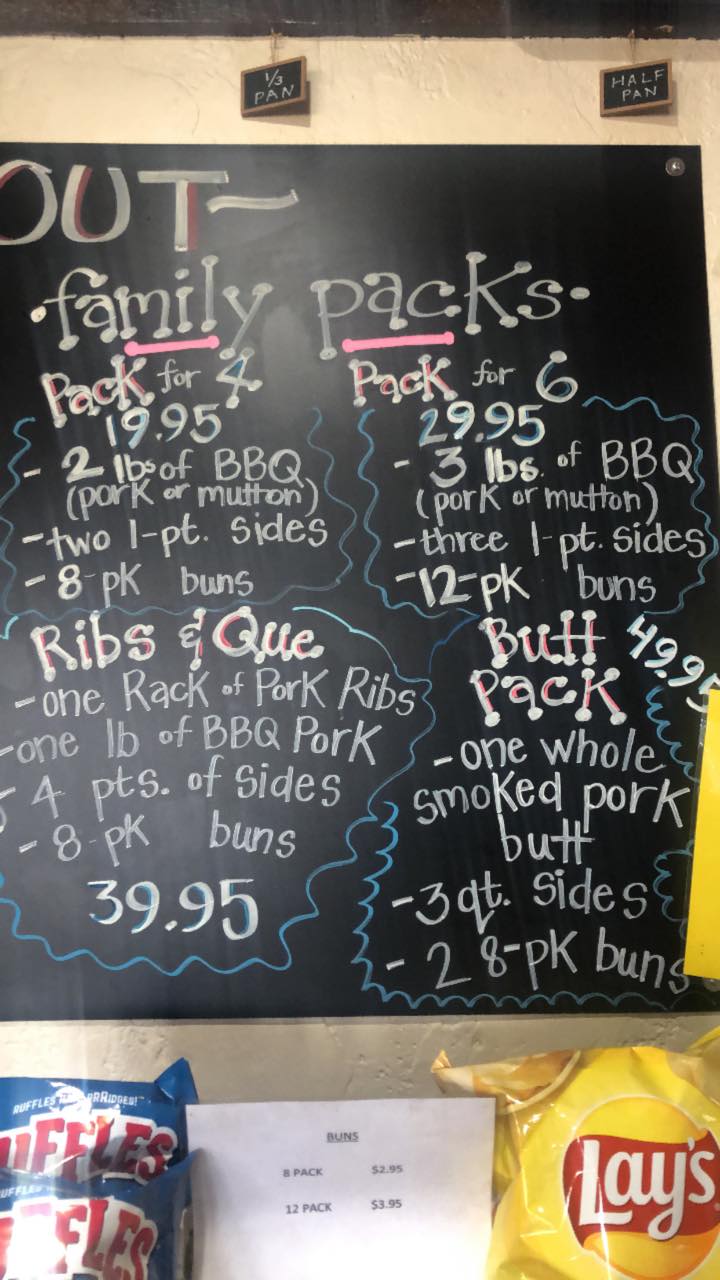 1/3
PAN
HALF
PAN
OUT~
·family packs·
Pack for 4
19.95
- 2 lbs of BBQ
(pork or mutton)
- two 1-pt. sides
- 8-pk buns
Pack for 6
29.95
- 3 lbs. of BBQ
(pork or mutton)
- three 1-pt. sides
- 12-pk buns
Ribs & Que
- one Rack of Pork Ribs
- one lb of BBQ Pork
- 4 pts. of Sides
- 8-pk buns
39.95
Butt 49.95
Pack
- one whole
smoked pork
butt
- 3 qt. Sides
- 2 8-pk buns
RUFFLES
RUFFLES
BUNS
8 PACK $2.95
12 PACK $3.95
Lay's